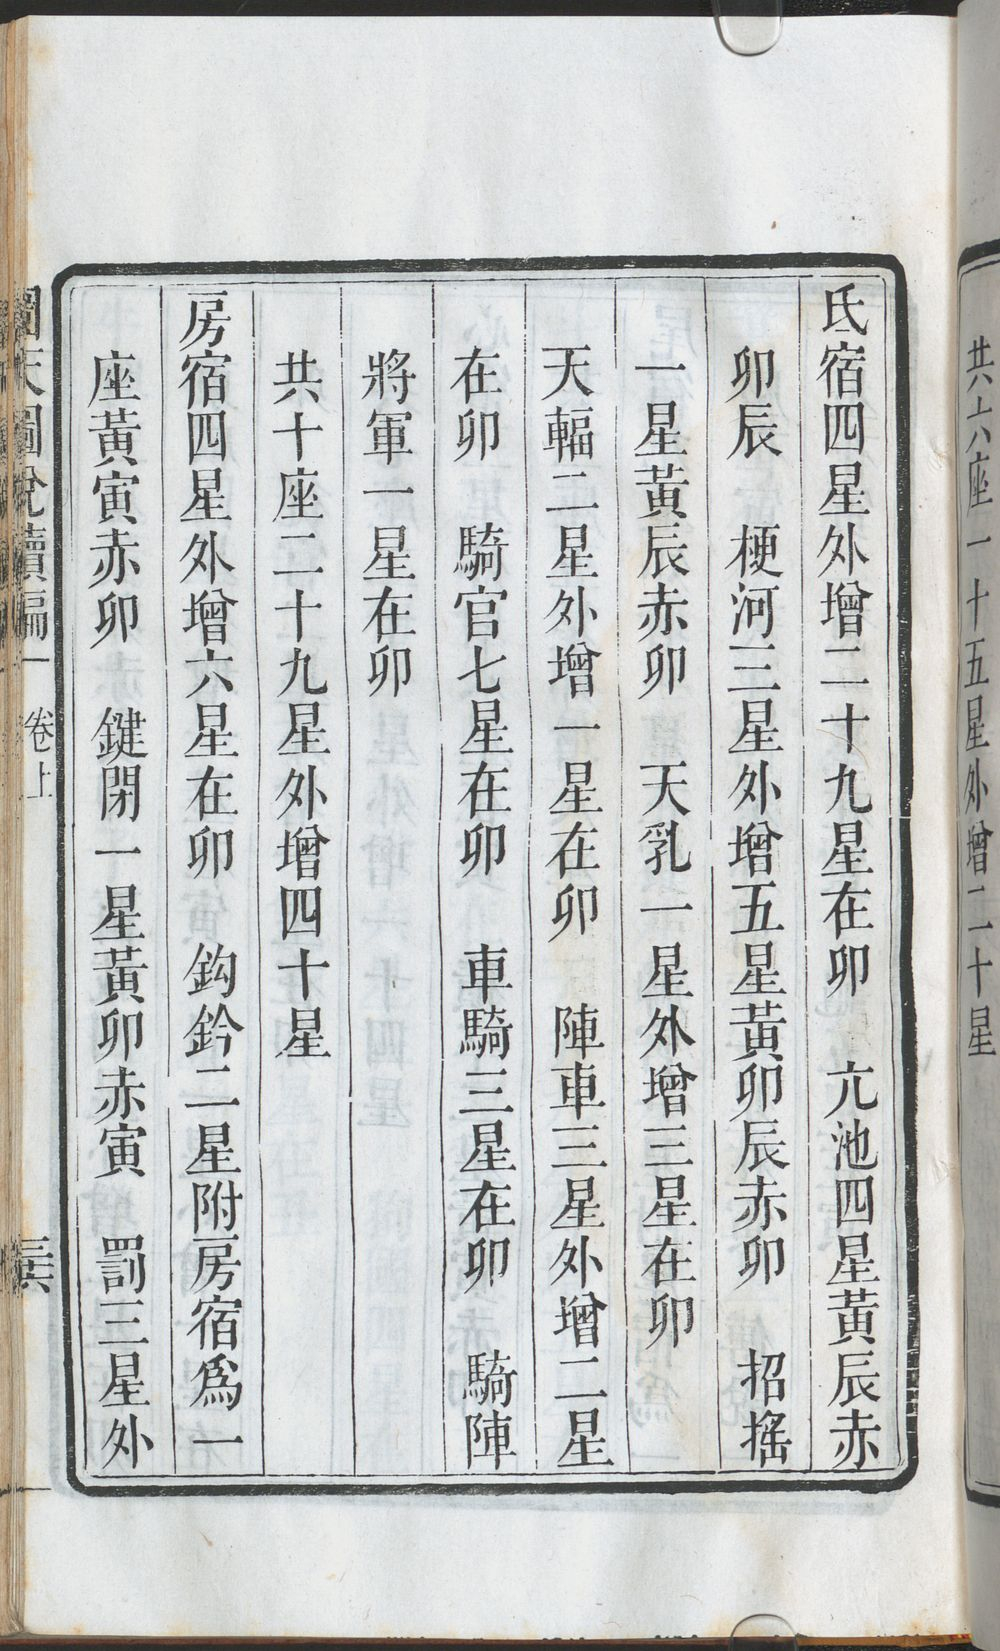 共六座一十五星外增二十星
氐宿四星外增二十九星在卯　亢池四星黃辰赤
卯辰　梗河三星外增五星黃卯辰赤卯　招搖
一星黃辰赤卯　天乳一星外增三星在卯
天輻二星外增一星在卯　陣車三星外增二星
在卯　騎官七星在卯　車騎三星在卯　騎陣
將軍一星在卯
共十座二十九星外增四十星
房宿四星外增六星在卯　鈎鈐二星附房宿爲一
座黃寅赤卯　鍵閉一星黃卯赤寅　罰三星外
圜天圖說續編　卷上